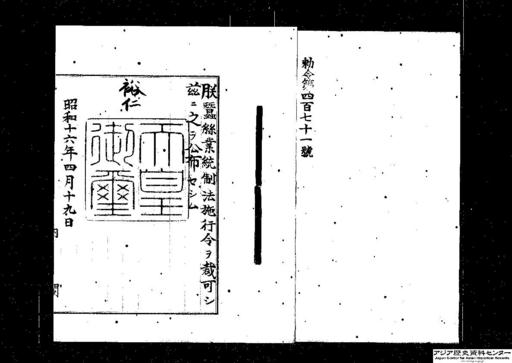 勅令第四百七十一號
朕蠶絲業統制法施行令ヲ裁可シ
茲ニ之ヲ公布セシム
裕仁
天皇
御璽
昭和十六年四月十九日
内閣
アジア歴史資料センター
Japan Center for Asian Historical Records